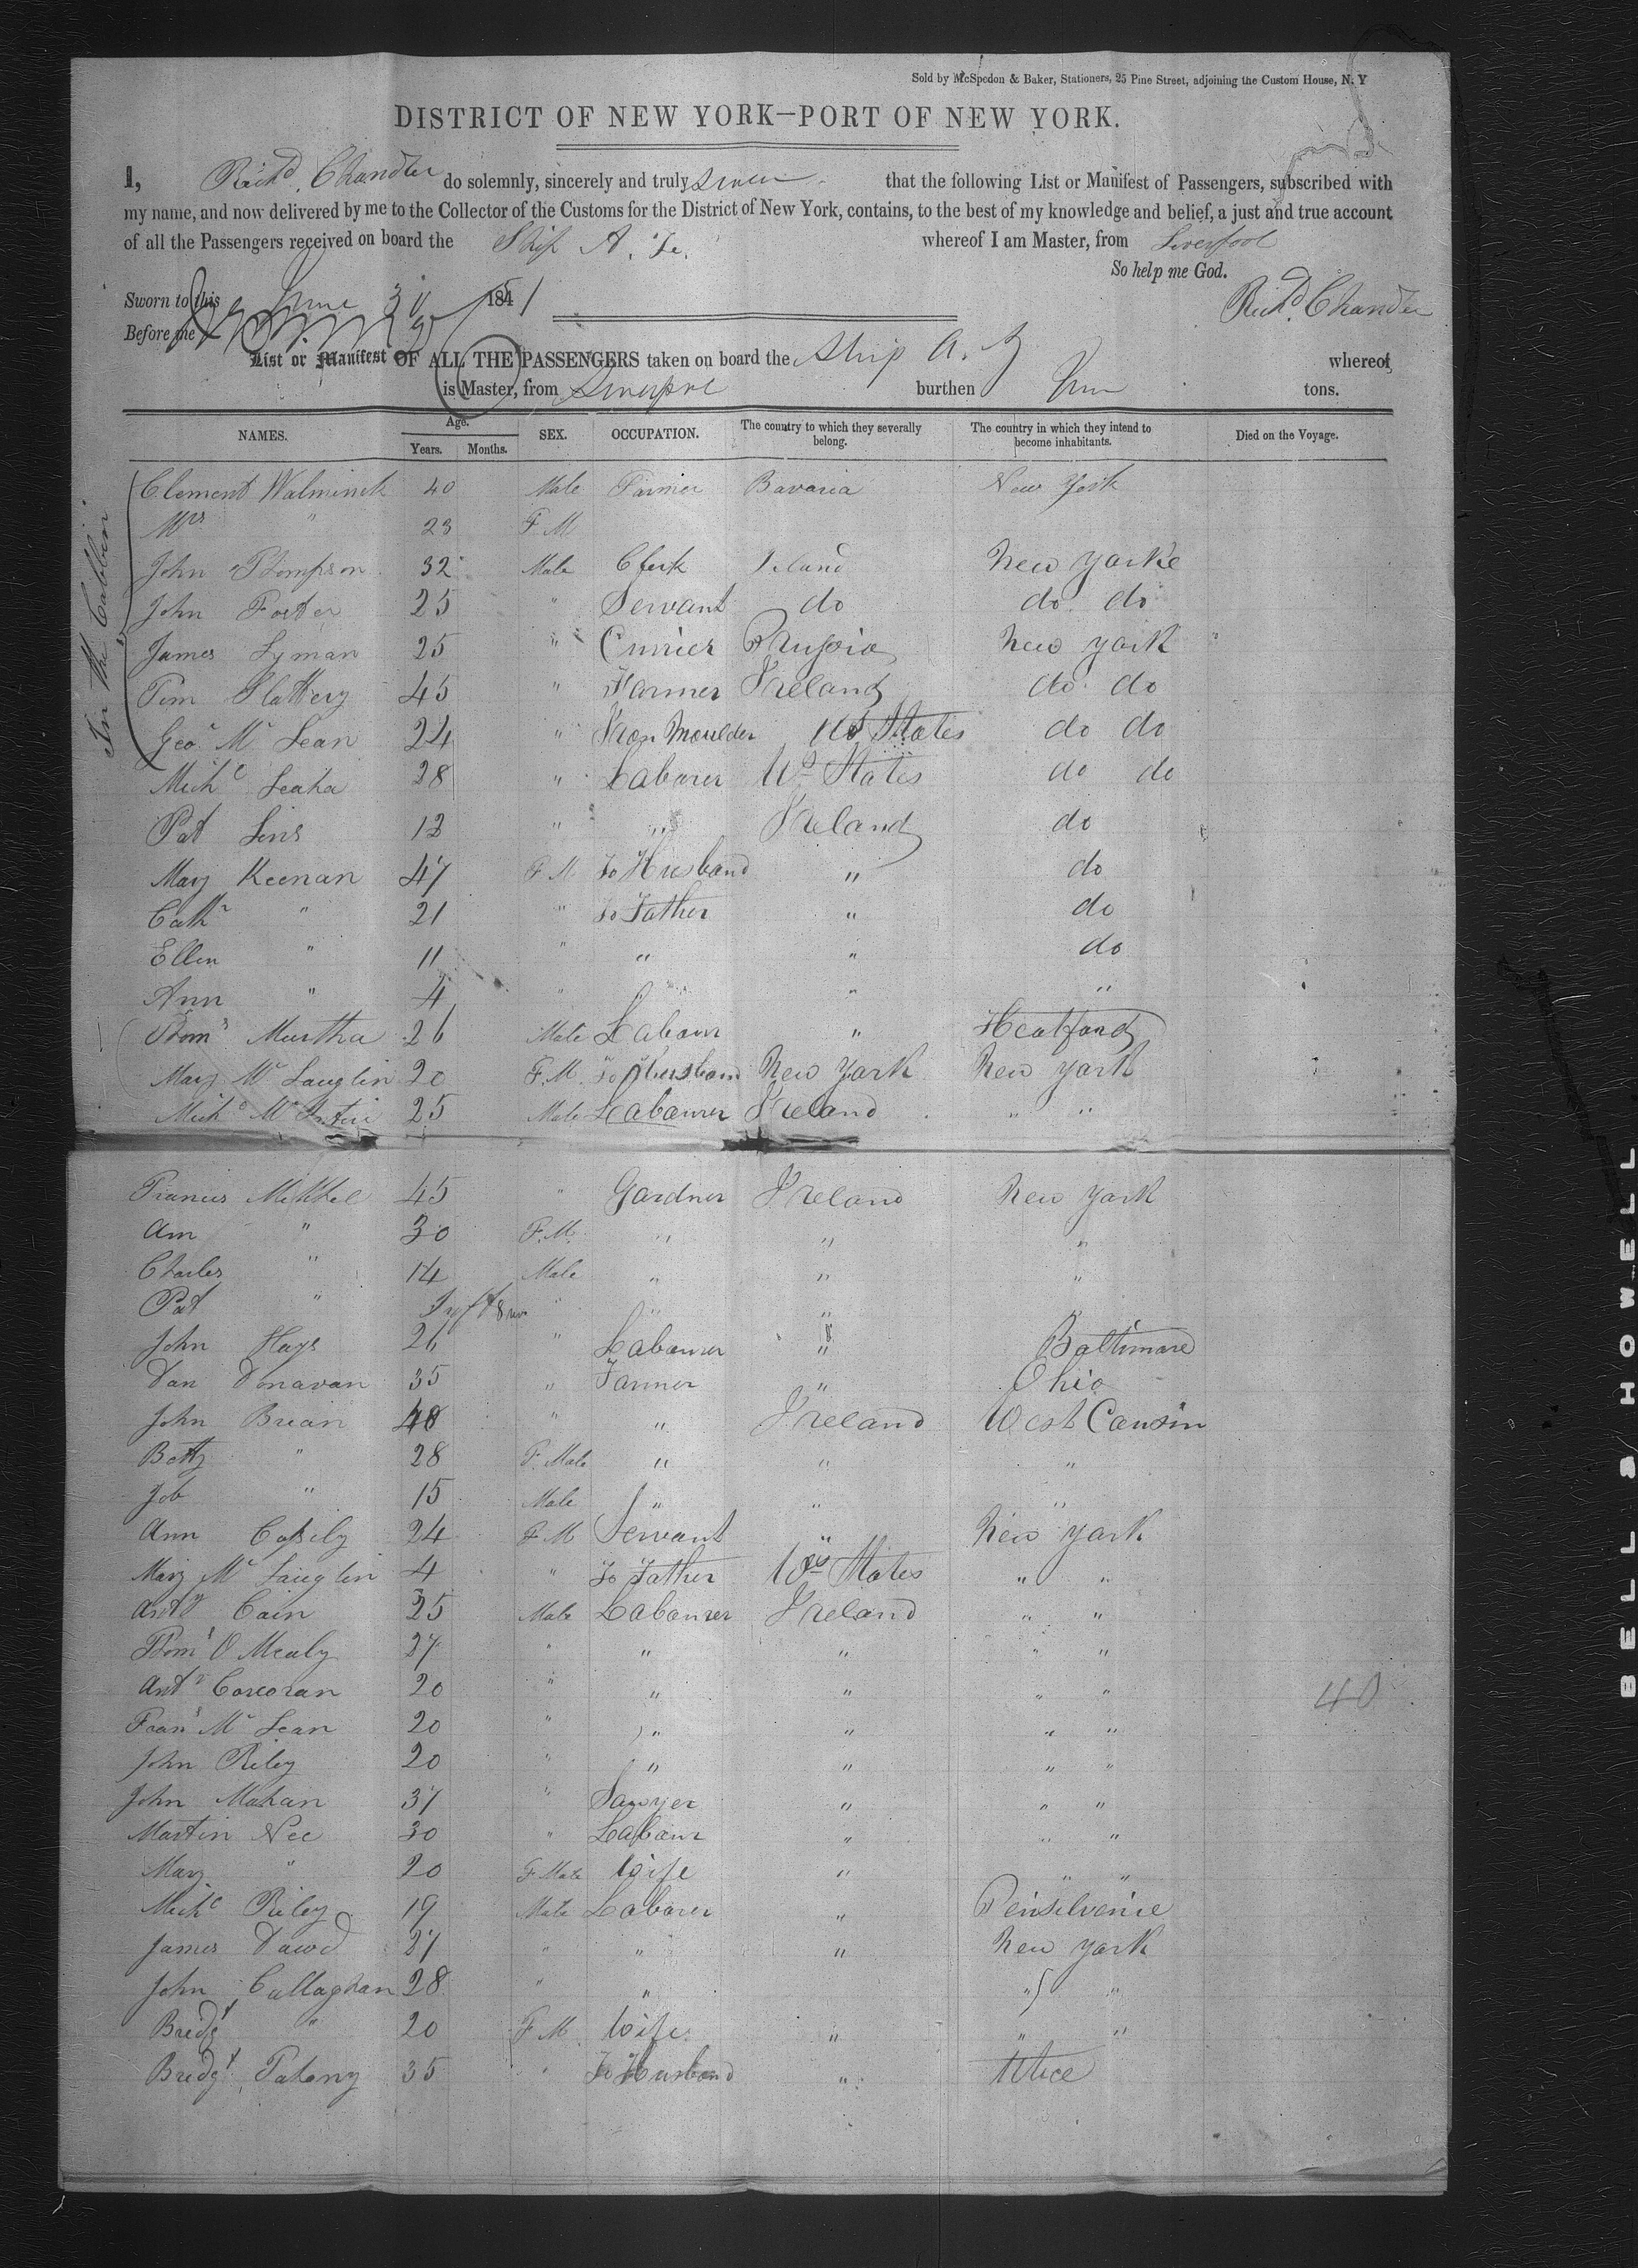 Sold by McSpedon & Baker, Stationers, 25 Pine Street, adjoining the Custom House, N. Y
DISTRICT OF NEW YORK—PORT OF NEW YORK.
I, Richd. Chandler do solemnly, sincerely and truly swear that the following List or Manifest of Passengers, subscribed with
my name, and now delivered by me to the Collector of the Customs for the District of New York, contains, to the best of my knowledge and belief, a just and true account
of all the Passengers received on board the Ship A. Z. whereof I am Master, from Liverpool
So help me God.
Sworn to this June 30 1851 Richd. Chandler
Before me
List or Manifest OF ALL THE PASSENGERS taken on board the Ship A. Z whereof
is Master, from burthen tons.
NAMES. Age. Years. Months. SEX. OCCUPATION. The country to which they severally belong. The country in which they intend to become inhabitants. Died on the Voyage.
In the Cabbin
Clement Walminck 40 Male Farmer Bavaria New York
Mrs " 23 F M
John Thompson 32 Male Clerk Ireland New Yorke
John Forter 25 " Servant do do do
James Lyman 25 " Currier Prussia New York
Tim Slattery 45 " Farmer Ireland do do
Geo. Mc Lean 24 " Iron Moulder Ud States do do
Michl Leaha 28 " Laborer Ud States do do
Pat Lins 13 " " Ireland do
Mary Keenan 47 F M To Husband " do
Cathn " 21 " To Father " do
Ellen " 11 " " " do
Ann " 4 " " " "
Thoms Murtha 26 Male Labour " Heatford
Mary Mc Lauglin 20 F.M. To Hursband New York New York
Michl Mc Intire 25 Male Labourer Ireland " "
Francis Mitchel 45 " Gardner Ireland New York
Ann " 30 F.M. " " "
Charles " 14 Male " " "
Pat " " " "
John Hays 26 " Labourer " Baltimore
Dan Donavan 35 " Farmer " Ohio
John Brian 48 " " Ireland West Cousin
Betty " 28 F. Male " " "
Job " 15 Male " " "
Ann Cassily 24 F M Servant " New York
Mary Mc Lauglin 4 " To Father Ud States " "
Anty Cain 25 Male Labourer Ireland " "
Thoms O Mealy 27 " " " " "
Anty Corcoran 20 " " " " " 40
Frans Mc Lean 20 " " " " "
John Riley 20 " " " " "
John Mahan 37 " Sawyer " " "
Martin Nee 30 " Labour " " "
Mary " 20 F Male Wife " " "
Michl Riley 19 Male Laborer " Penselvenie
James Dawd 27 " " " New York
John Callaghan 28 " " " "
Bredgt " 20 F M Wife " " "
Bredgt Patony 35 " To Husband " Utice
BELL & HOWELL